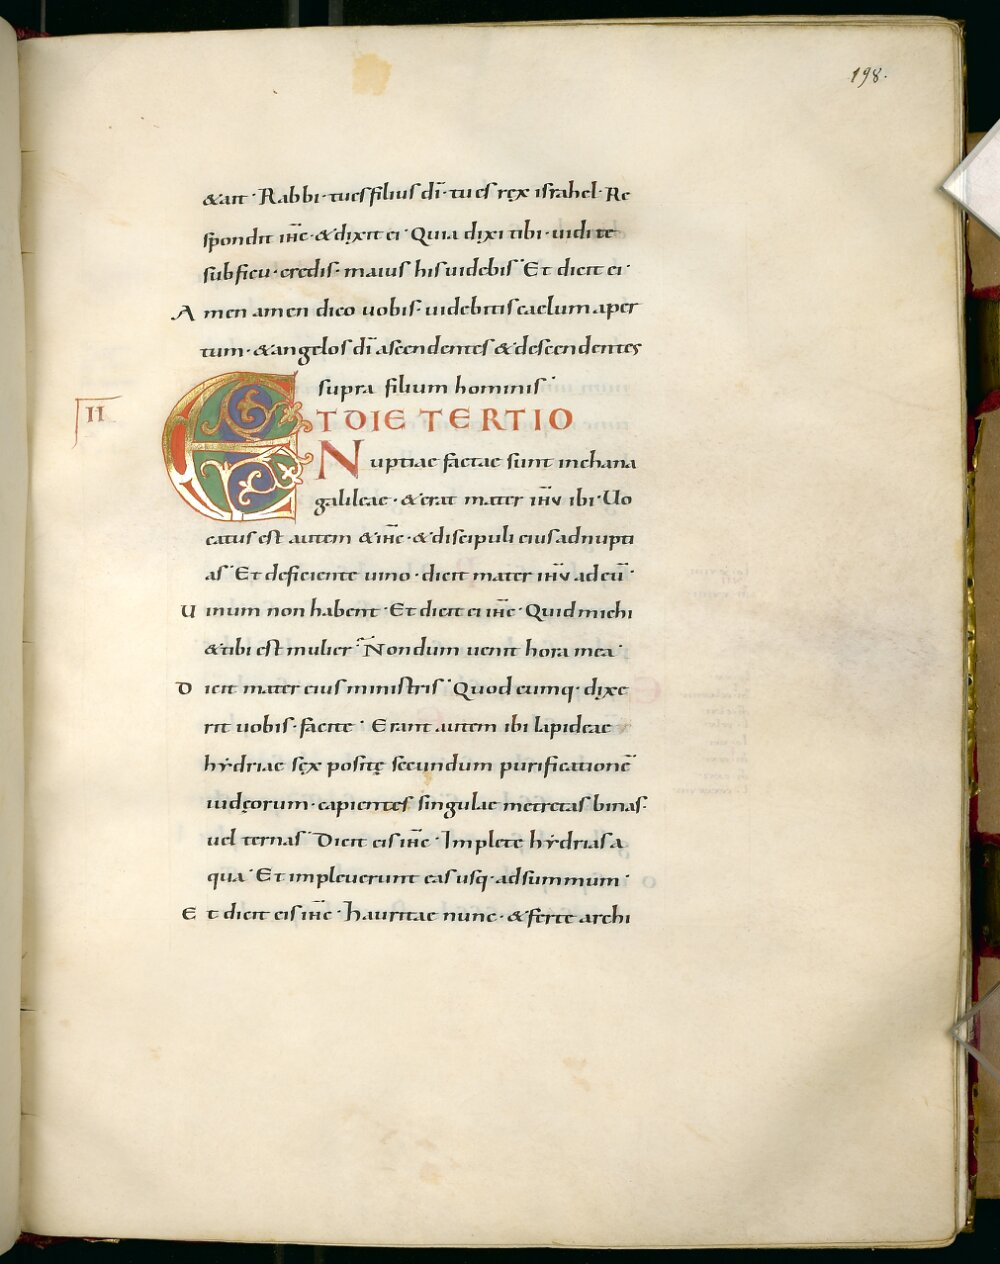 198.
& ait · Rabbi · tu es filius dī · tu es rex israhel · Re
spondit ihc · & dixit ei · Quia dixi tibi · uidi te
sub ficu · credis · maius his uidebis · Et dicit ei ·
Amen amen dico uobis · uidebitis caelum aper
tum · & angelos dī ascendentes & descendentes
supra filium hominis ·
II
ET DIE TERTIO
Nuptiae factae sunt in chana
galileae · & erat mater ihu ibi · Uo
catus est autem & ihc · & discipuli eius ad nupti
as · Et deficiente uino · dicit mater ihu ad eū ·
Uinum non habent · Et dicit ei ihc · Quid michi
& tibi est mulier · Nondum uenit hora mea ·
Dicit mater eius ministris · Quod cumq· dixe
rit uobis · facite · Erant autem ibi lapideae
hydriae sex positę secundum purificationē
iudęorum · capientes singulae metretas binas ·
uel ternas · Dicit eis ihc · Implete hydrias a
qua · Et impleuerunt eas usq· ad summum ·
Et dicit eis ihc · Hauritae nunc · & ferte archi